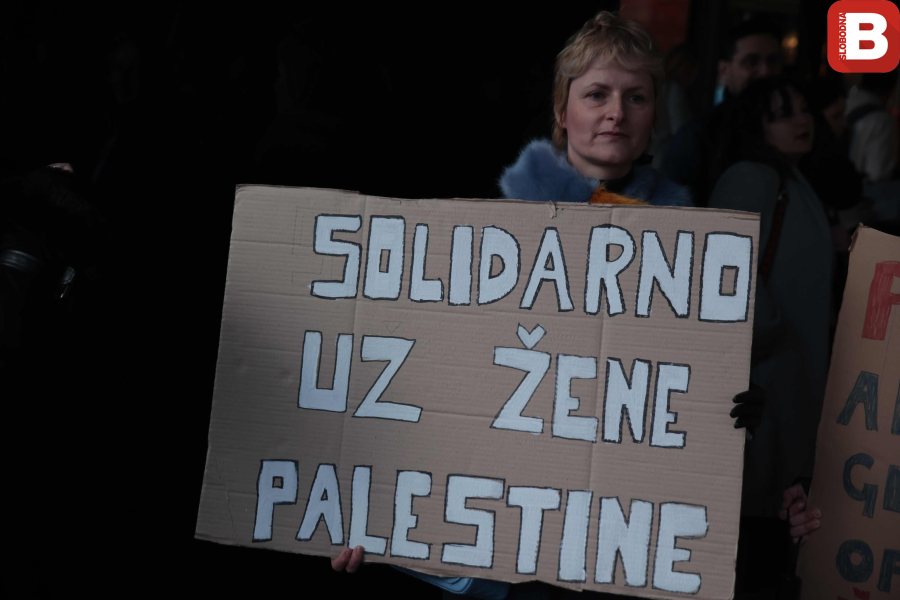 SOLIDARNO
UZ ŽENE
PALESTINE
SLOBODNA
B